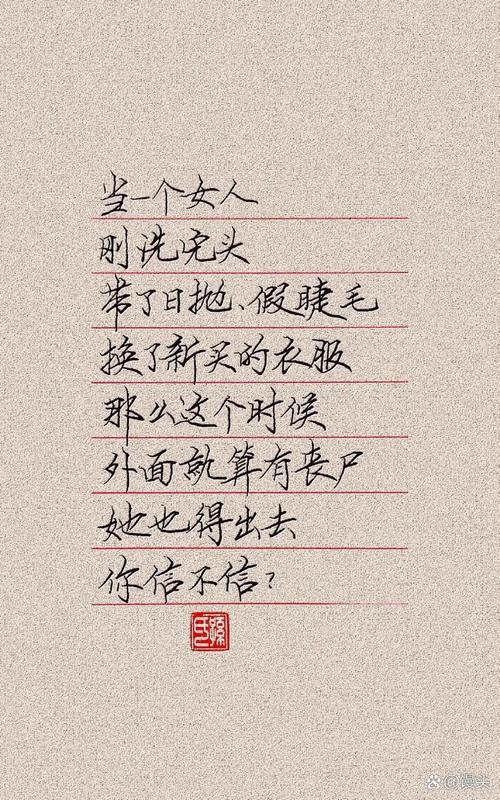 当一个女人
刚洗完头
带了日抛、假睫毛
换了新买的衣服
那么这个时候
外面就算有丧尸
她也得出去
你信不信?
孫氏
@馒头